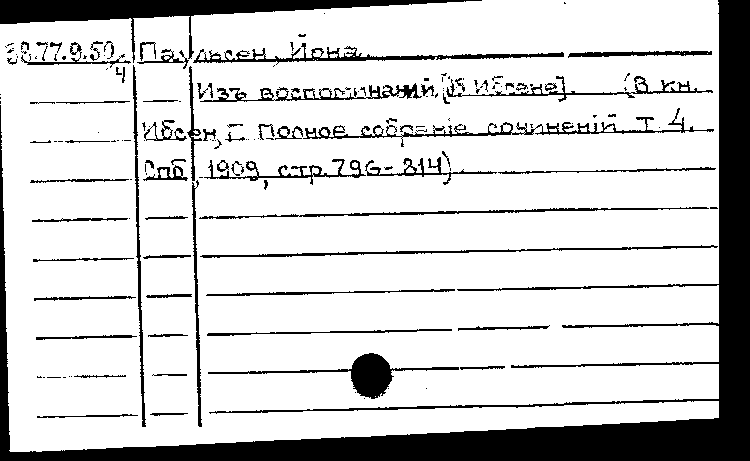 38.77.9.50/4 Паульсен, Йона.
Изъ воспоминаній [Об Ибсене]. (В кн.
Ибсен, Г. Полное собраніе сочиненій. Т. 4.
Спб, 1909, стр. 796-814)